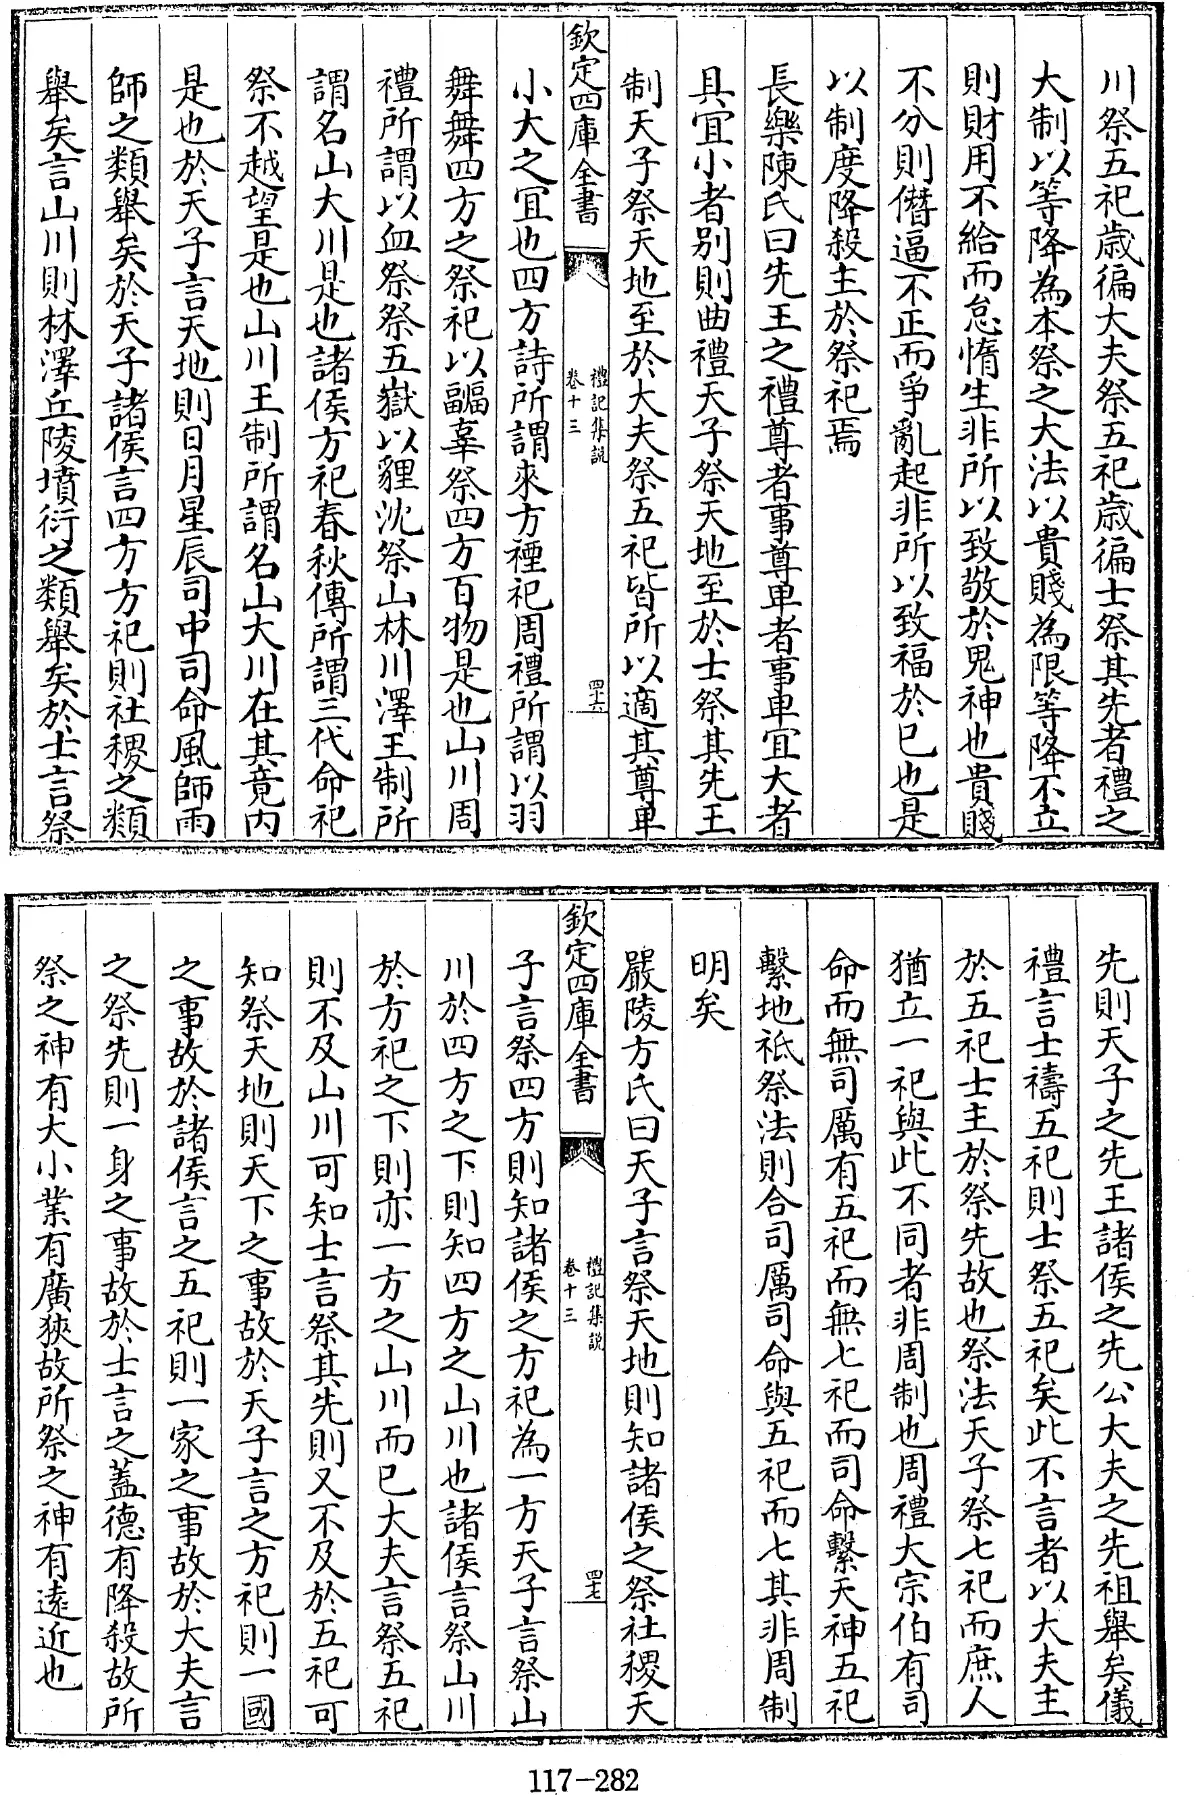 川祭五祀歳徧大夫祭五祀歳徧士祭其先者禮之
大制以等降為本祭之大法以貴賤為限等降不立
則財用不給而怠惰生非所以致敬於鬼神也貴賤
不分則僭逼不正而爭亂起非所以致福於已也是
以制度降殺主於祭祀焉
長樂陳氏曰先王之禮尊者事尊卑者事卑宜大者
具宜小者别則曲禮天子祭天地至於士祭其先王
制天子祭天地至於大夫祭五祀皆所以適其尊卑
欽定四庫全書
禮記集説
卷十三
四十六
小大之宜也四方詩所謂來方禋祀周禮所謂以羽
舞舞四方之祭祀以疈辜祭四方百物是也山川周
禮所謂以血祭祭五嶽以貍沈祭山林川澤王制所
謂名山大川是也諸侯方祀春秋傳所謂三代命祀
祭不越望是也山川王制所謂名山大川在其竟内
是也於天子言天地則日月星辰司中司命風師雨
師之類舉矣於天子諸侯言四方方祀則社稷之類
舉矣言山川則林澤丘陵墳衍之類舉矣於士言祭
先則天子之先王諸侯之先公大夫之先祖舉矣儀
禮言士禱五祀則士祭五祀矣此不言者以大夫主
於五祀士主於祭先故也祭法天子祭七祀而庶人
猶立一祀與此不同者非周制也周禮大宗伯有司
命而無司厲有五祀而無七祀而司命繫天神五祀
繫地祗祭法則合司厲司命與五祀而七其非周制
明矣
嚴陵方氏曰天子言祭天地則知諸侯之祭社稷天
欽定四庫全書
禮記集説
卷十三
四七
子言祭四方則知諸侯之方祀為一方天子言祭山
川於四方之下則知四方之山川也諸侯言祭山川
於方祀之下則亦一方之山川而已大夫言祭五祀
則不及山川可知士言祭其先則又不及於五祀可
知祭天地則天下之事故於天子言之方祀則一國
之事故於諸侯言之五祀則一家之事故於大夫言
之祭先則一身之事故於士言之蓋德有降殺故所
祭之神有大小業有廣狹故所祭之神有遠近也
117-282